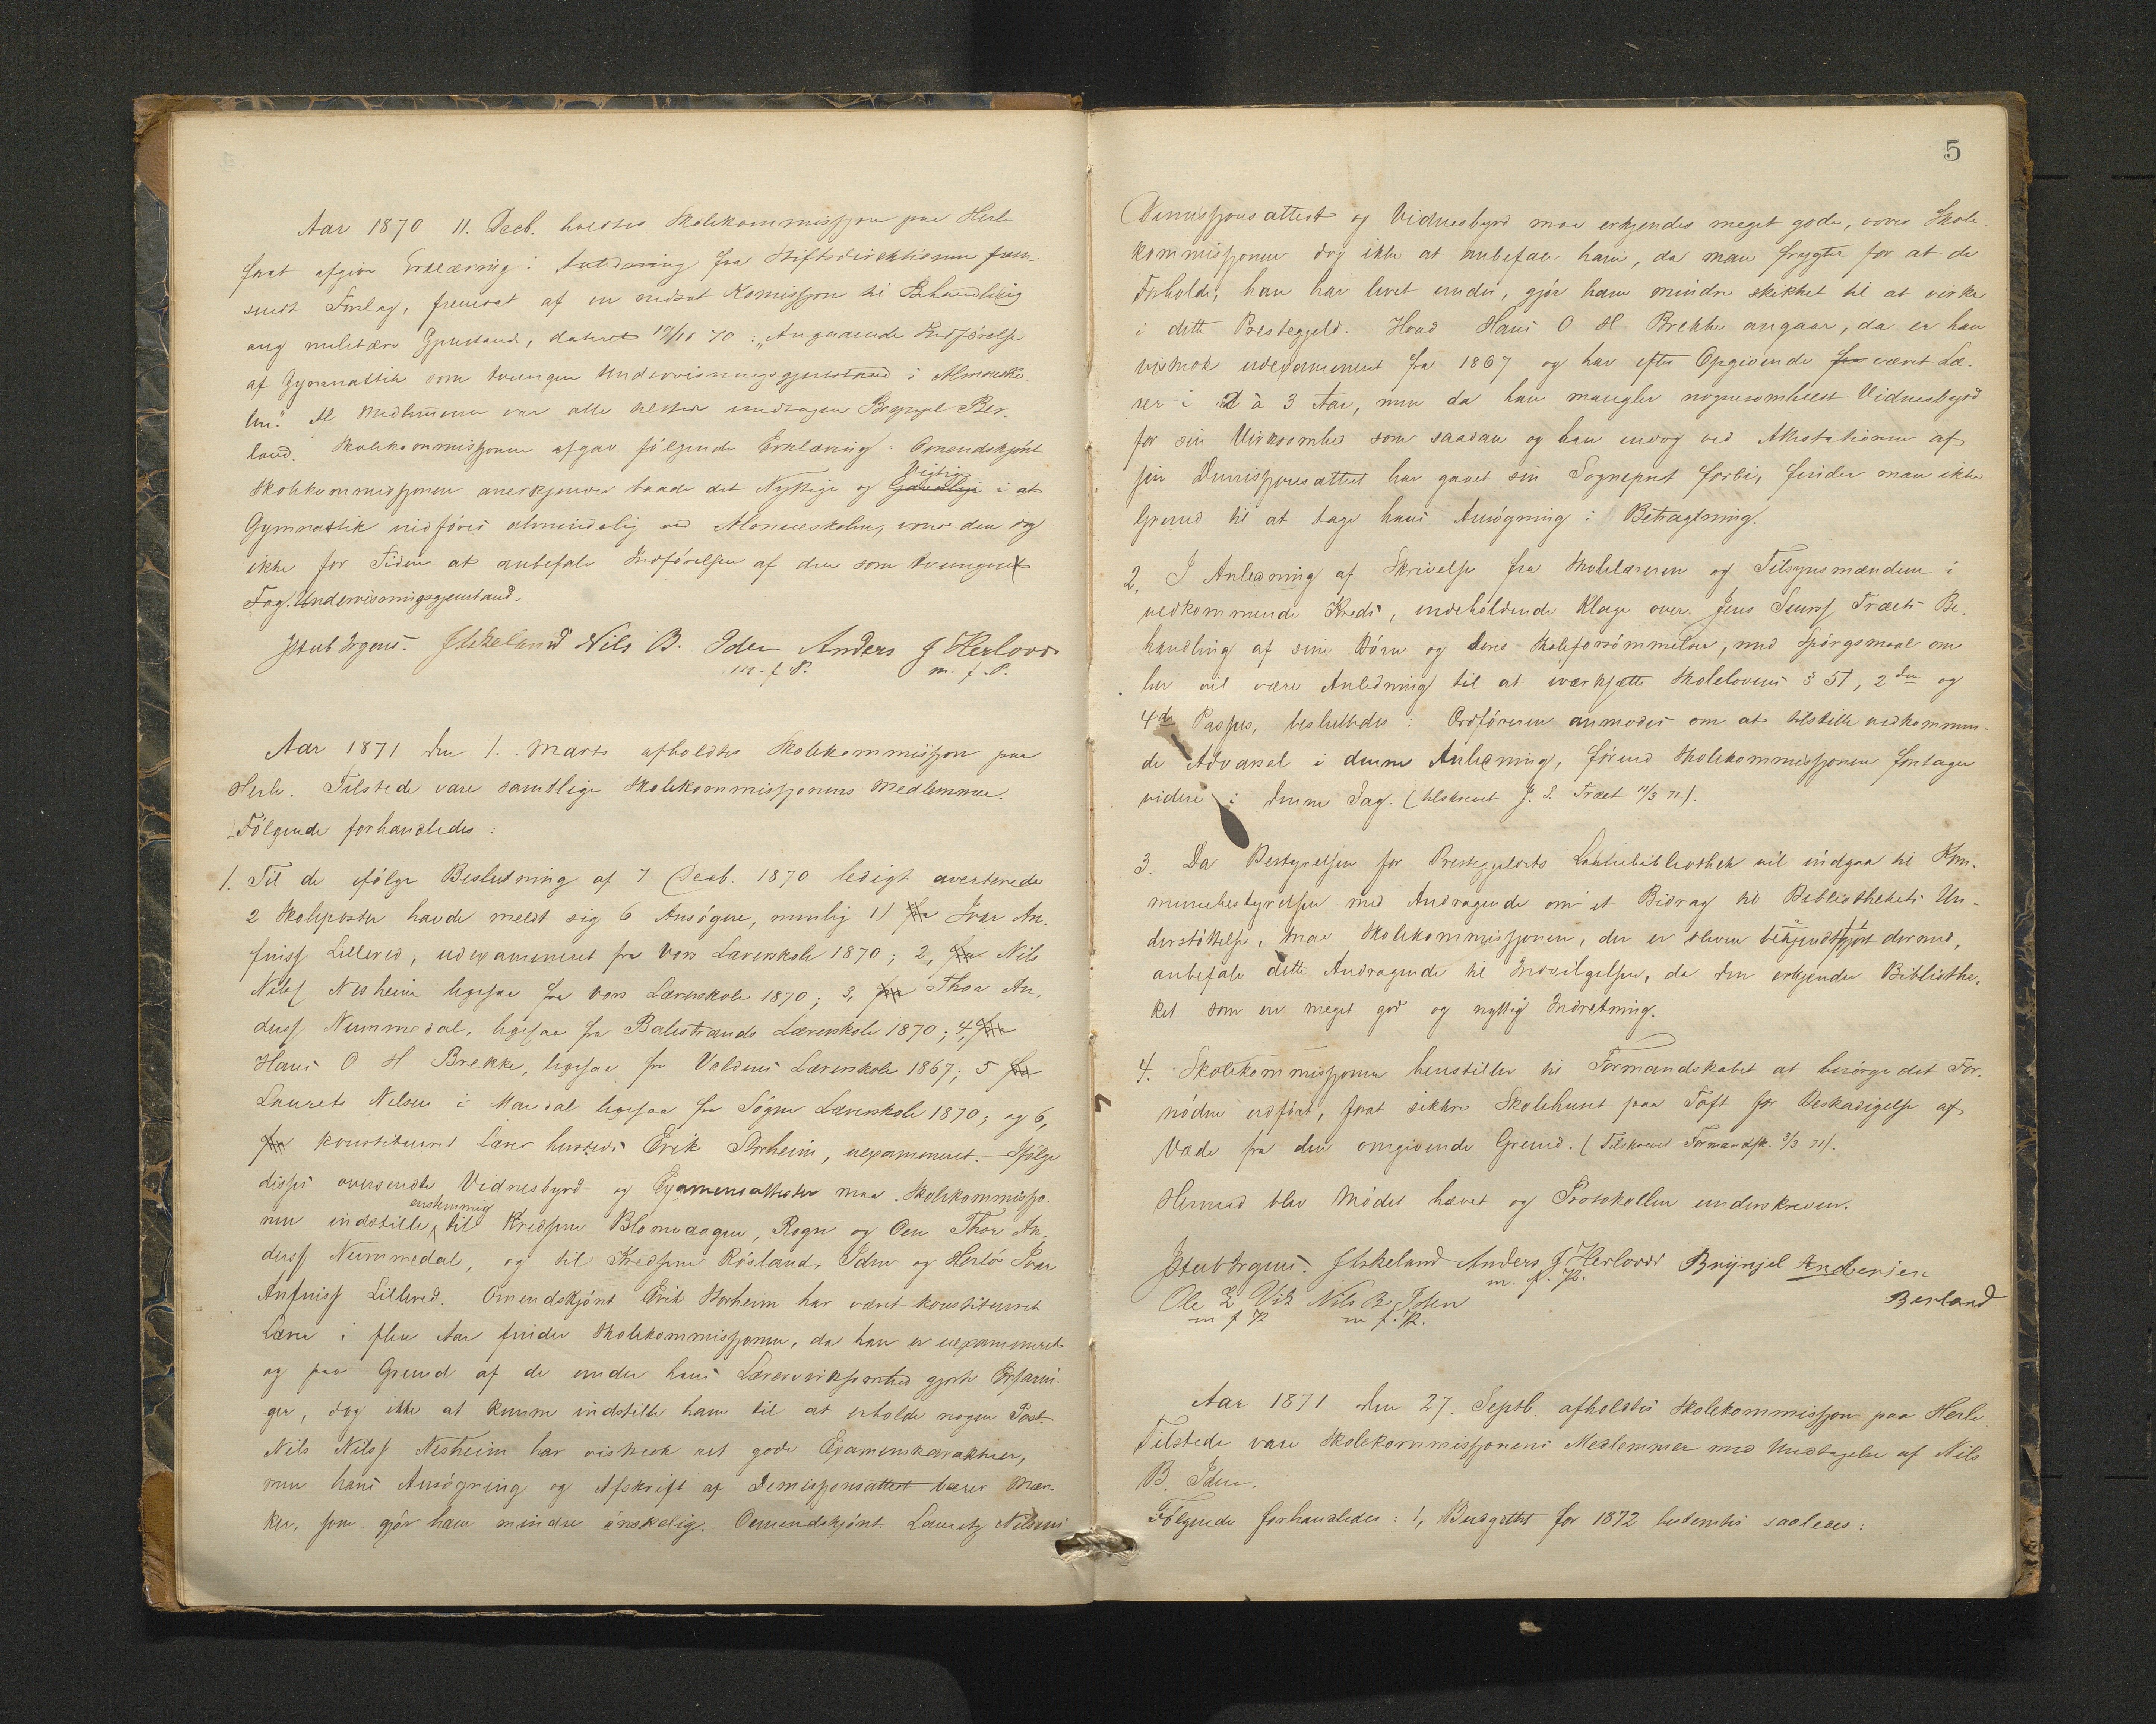 Aar 1870 11. Decb. holdtes Skolekommissjon paa Herlø
for at afgive Erklæring i Anledning fra Stiftsdirektionen frem-
sendt Forslag, fremsat af en nedsat Komissjon til Behandling
ang militære Gjenstande, dateret 70: "Angaaende Indførelse
af Gymnastik som tvungen Undervisningsgjenstand i Almueskο-
len." Af Medlemmerne var alle tilstede undtagen Brynjel Ber-
land. Skolekommissjonen afgav følgende Erklæring: Omendskjønt
Skolekommissjonen anerkjender baade det Nyttige og Vigtige i at
Gymnastik indføres almindelig ved Almueskolen, vover den dog
ikke for Tiden at anbefale Indførelsen af den som tvungent
Fag. Undervisningsgjenstand.
J Stub Irgens. J Askeland Nils B. Iden Anders J Herlover
m. f. P. m. f. P.
Aar 1871 den 1. Marts afholdtes Skolekommissjon paa
Herlø. Tilstede vare samtlige Skolekommissjonens Medlemmer.
Følgende forhandledes:
1. Til de ifølge Beslutning af 7. Decb. 1870 ledigt averterede
2 Skoleposter havde meldt sig 6 Ansøgere, nemlig 1) fra Ivar An-
finss Lillered, udexamineret fra Vors Lærerskole 1870; 2, fra Nils
Nilss Nesheim ligesaa fra Vors Lærerskole 1870; 3, fra Thor An-
derss Nummedal, ligesaa fra Balestrands Lærerskole 1870; 4, fra
Hans O H Brekke, ligesaa fra Voldens Lærerskole 1867; 5 fra
Lauretz Nilsen i Mandal ligesaa fra Søgne Lærerskole 1870; og 6,
fra konstitueret Lærer hersteds Erik Storheim, uexamineret. Ifølge
disses oversendte Vidnesbyrd og Examensattester maa Skolekommissjo-
nen indstille enstemmig til Kredsene Blomvaagen, Rogn og Oen Thor An-
derss Nummedal, og til Kredsene Røsland, Iden og Herlø Ivar
Anfinss Lillered. Omendskjønt Erik Storheim har været konstitueret
Lærer i flere Aar finder Skolekommissjonen, da han er uexamineret
og paa Grund af de under hans Lærervirksomhed gjorte Erfarin-
ger, dog ikke at kunne indstille ham til at erholde nogen Post.
Nils Nilss Nesheim har vistnok ret gode Examenskarakterer,
men hans Ansøgning og Afskrift af Demissjonsattest bærer Mær-
ker, som gjør ham mindre ønskelig. Omendskjønt Lauretz Nilsens
5
Dimissjonsattest og Vidnesbyrd maa erkjendes meget gode, vover Skole-
kommissjonen dog ikke at anbefale ham, da man frygter for at de
Forholde, han har levet under, gjør ham mindre skikket til at virke
i dette Prestegjeld. Hvad Hans O H Brekke angaar, da er han
vistnok udexamineret fra 1867 og har efter Opgivende fra været Læ-
rer i 2 à 3 Aar, men da han mangler nogensomhelst Vidnesbyrd
for sin Virksomhed som saadan og han endog ved Attestationen af
sin Dimissjonsattest har gaaet sin Sogneprest forbi, finder man ikke
Grund til at tage hans Ansøgning i Betragtning.
2, I Anledning af Skrivelse fra Skolelæreren og Tilsynsmændene i
vedkommende Kreds, indeholdende Klage over Jens Simss Træets Be-
handling af sine Børn og deres Skoleforsømmelser, med Spørgsmaal om
her vil være Anledning til at iværksætte Skolelovens § 51, 2den og
4de Passus, besluttedes: Ordføreren anmodes om at tilstille vedkommen-
de Advarsel i denne Anledning, førend Skolekommissjonen foretager
videre i denne Sag. (tilskrevet J. S. Træet 11/3 71).
3. Da Bestyrelsen for Prestegjeldets Laanebibliothek vil indgaa til Kom-
munebestyrelsen med Andragende om et Bidrag til Bibliothekets Un-
derstøttelse, maa Skolekommissjonen, der er bleven bekjendtgjort dermed,
anbefale dette Andragende til Indvilgelsen, da den erkjender Bibliothe-
ket som en meget god og nyttig Indretning.
4. Skolekommissjonen henstiller til Formandskabet at besørge det For-
nødne udført, forat sikkre Skolehuset paa Toft for Beskadigelse af
Vade fra den omgivende Grund. (Tilskrevet Formandsk. 3/3 71).
Hermed blev Mødet hævet og Protokollen underskreven.
J Stub Irgens. J Askeland Anders J Herlover Brynjel Andersen
m. f. P. Berland
Ole E Vik Nils B Iden
m f P m f. P.
Aar 1871 den 27. Septb. afholdtes Skolekommissjon paa Herlø.
Tilstede vare Skolekommissjonens Medlemmer med Undtagelse af Nils
B. Iden.
Følgende forhandledes: 1, Budgettet for 1872 bestemtes saaledes: